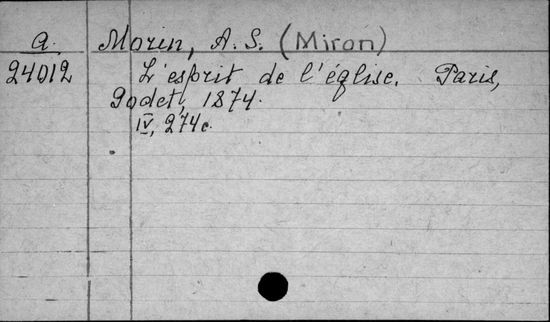 a. Morin, A. S. (Miron)
24012 L'esprit de l'église. Paris,
Godet, 1874.
IV, 274c.